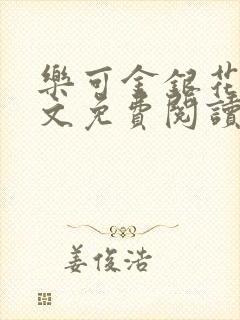 樂可金銀花
文免費閱讀
姜俊浩